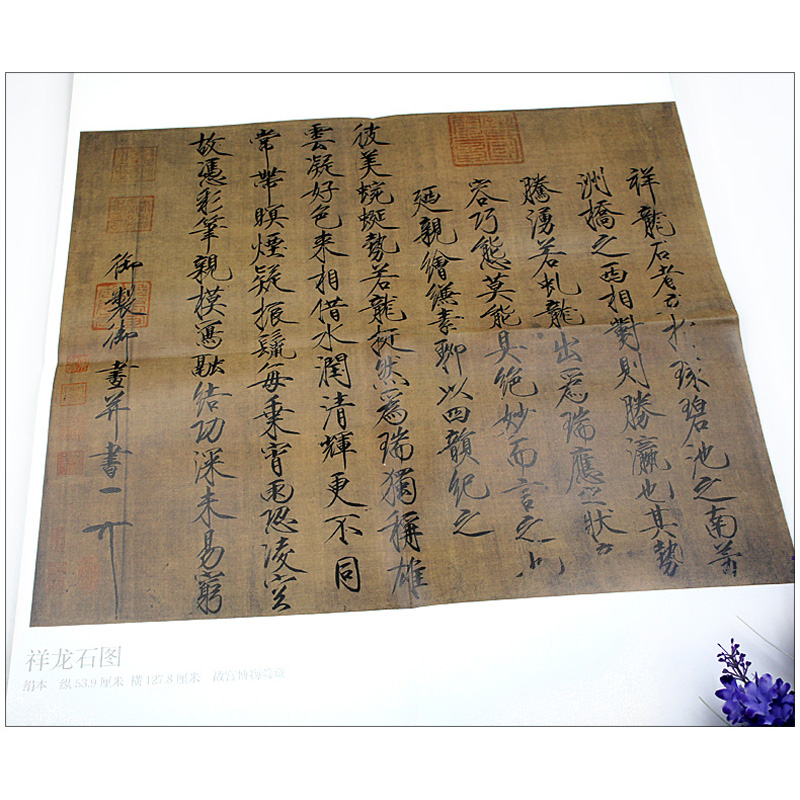 祥龍石者立於環碧池之南芳
洲橋之西相對則勝瀛也其勢
騰湧若虬龍出為瑞應之狀奇
容巧態莫能具絕妙而言之也
廼親繪縑素聊以四韻紀之
彼美蜿蜒勢若龍挺然爲瑞獨稱雄
雲凝好色来相借水潤清輝更不同
常帶瞑煙疑振鬣每乗宵雨恐凌空
故憑彩筆親模寫融結功深未易窮
御製御畫并書
祥龙石图
绢本 纵53.9厘米 横127.8厘米 故宫博物院藏